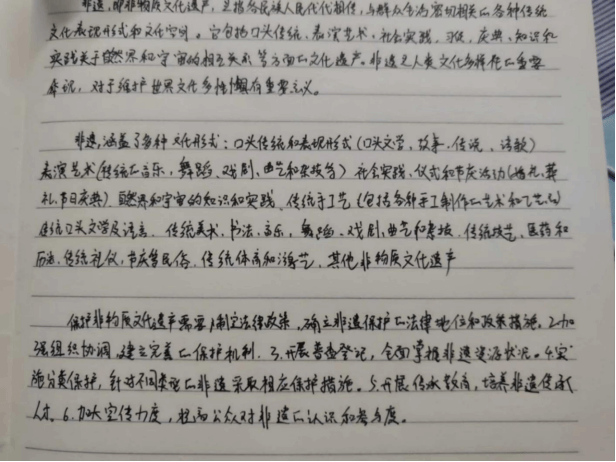 非遗,即非物质文化遗产,是指各民族人民代代相传,与群众生活密切相关的各种传统
文化表现形式和文化空间。它包括口头传统、表演艺术、社会实践、习俗、庆典、知识和
实践关于自然界和宇宙的相互关系等方面的文化遗产。非遗是人类文化多样性的重要
标识,对于维护世界文化多样性具有重要意义。
非遗涵盖了各种文化形式:口头传统和表现形式(口头文学、故事、传说、诗歌)
表演艺术(传统的音乐、舞蹈、戏剧、曲艺和杂技等)社会实践、仪式和节庆活动(婚礼、葬
礼、节日庆典)自然界和宇宙的知识和实践、传统手工艺(包括各种手工制作的艺术和工艺品)
传统口头文学及语言、传统美术、书法、音乐、舞蹈、戏剧、曲艺和杂技、传统技艺、医药和
历法、传统礼仪、节庆等民俗、传统体育和游艺、其他非物质文化遗产
保护非物质文化遗产需要1.制定法律政策,确立非遗保护的法律地位和政策措施。2.加
强组织协调,建立完善的保护机制。3.开展普查登记,全面掌握非遗资源状况。4.实
施分类保护,针对不同类型的非遗采取相应保护措施。5.开展传承教育,培养非遗传承
人才。6.加大宣传力度,提高公众对非遗的认识和参与度。